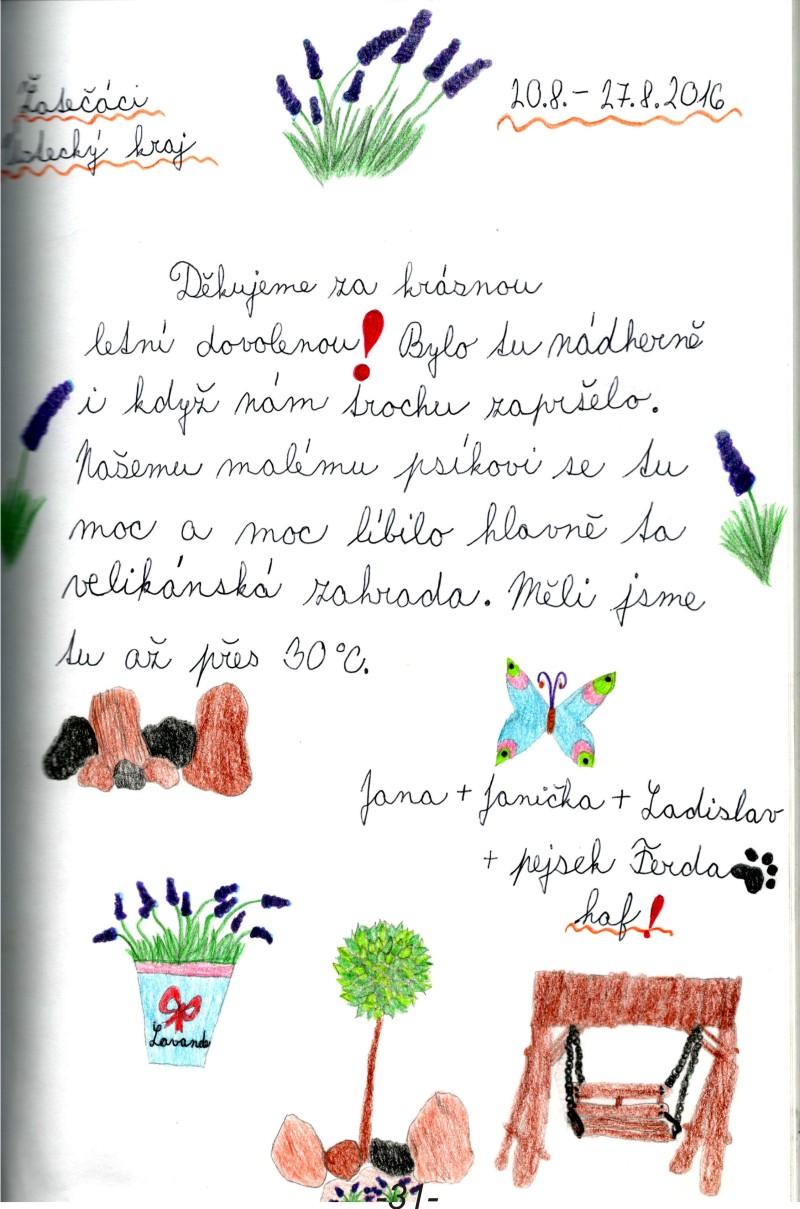 Žatečáci
20.8. – 27.8.2016
Ústecký kraj
Děkujeme za krásnou
letní dovolenou! Bylo tu nádherně
i když nám trochu zapršelo.
Našemu malému psíkovi se tu
moc a moc líbilo hlavně ta
velikánská zahrada. Měli jsme
tu až přes 30°C.
Jana + Janička + Ladislav
+ pejsek Ferda
haf!
Lavande
-31-